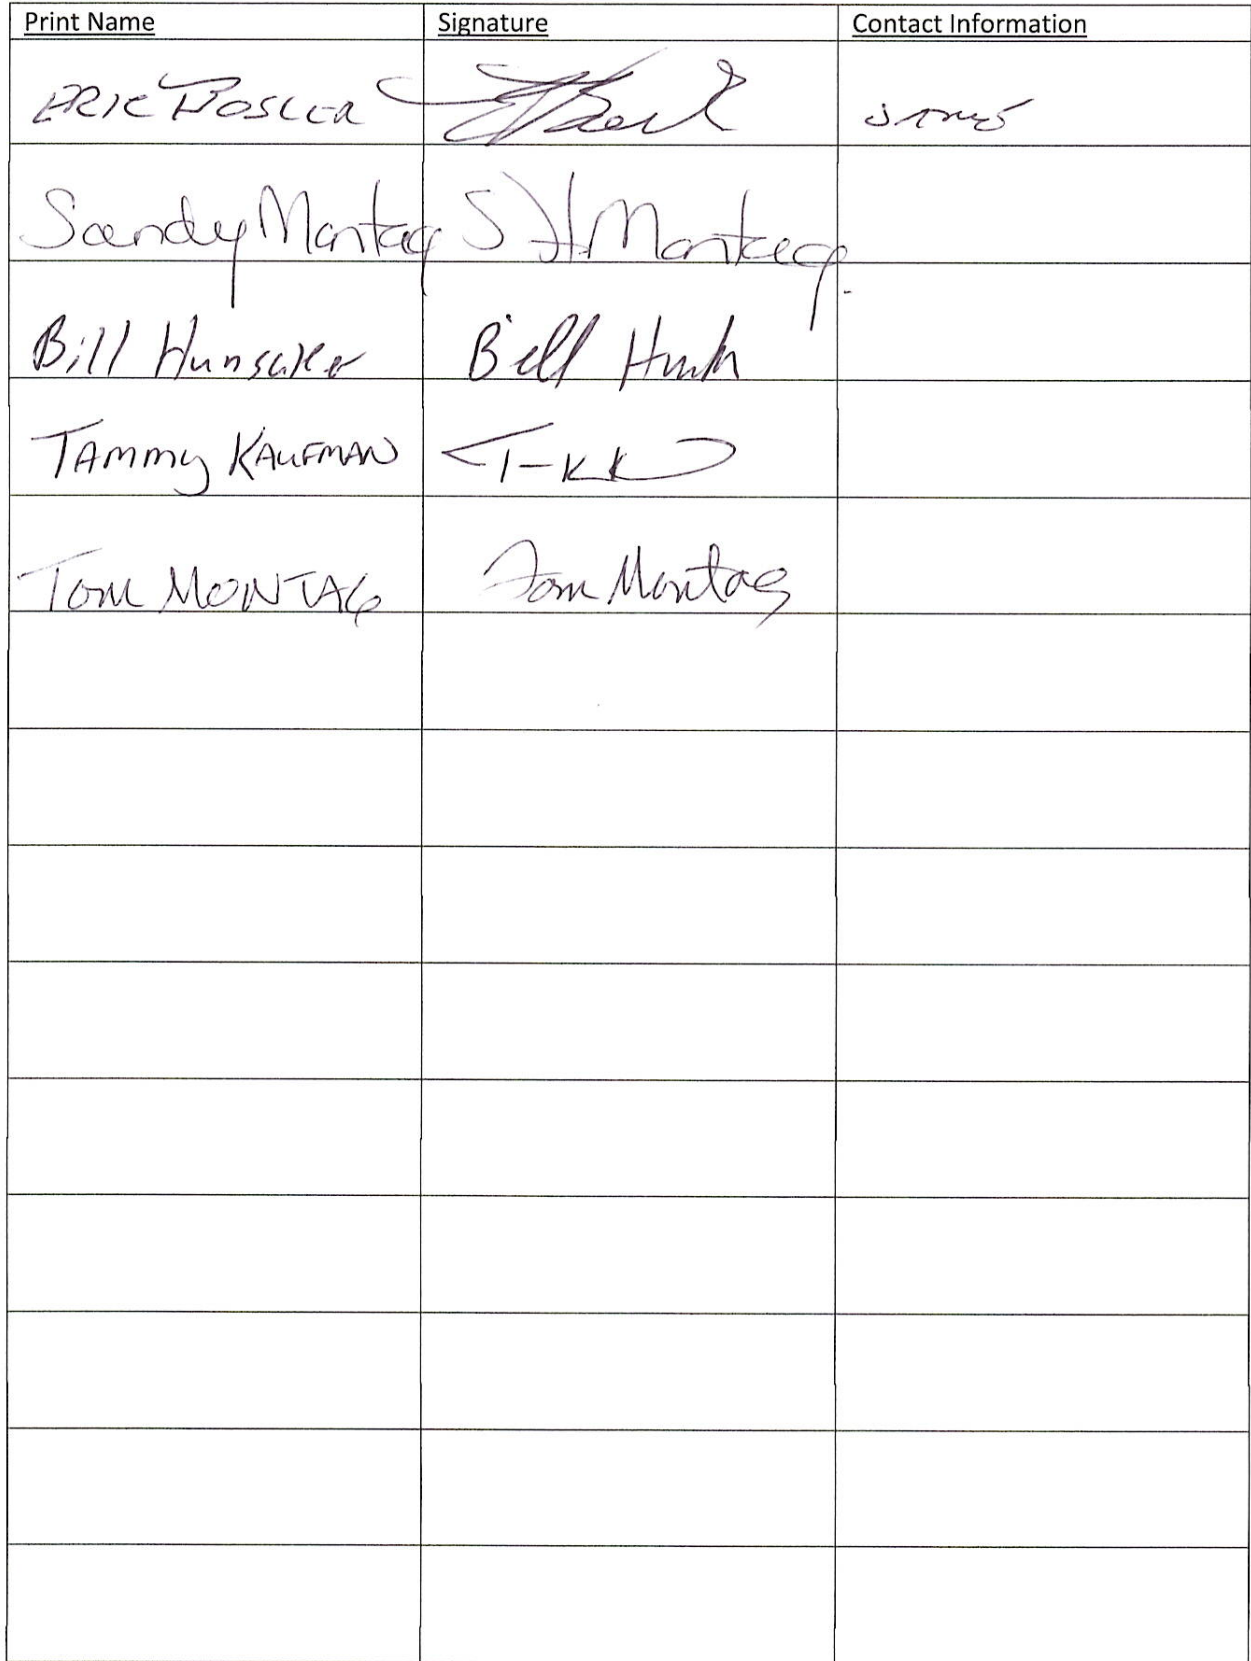 Print Name Signature Contact Information
ERIC BOSLER
Sandy Montag S H Montag
Bill Hunsaker Bill Hunsaker
TAMMY KAUFMAN T-KK
TOM MONTAG Tom Montag